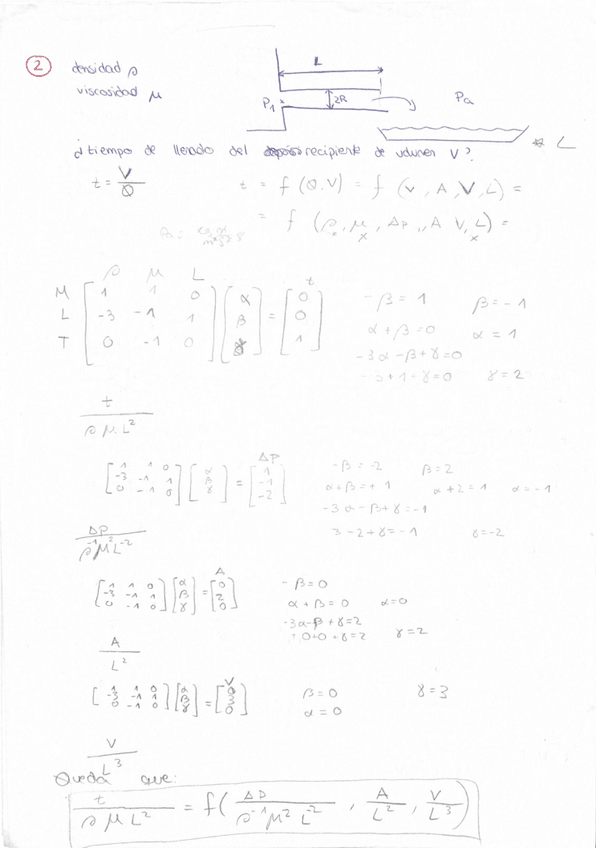 2
densidad ρ
viscosidad μ
L
P1
2R
Pa
¿tiempo de llenado del recipiente de volumen V?
* L
t = V/Q
t = f(Q,V) = f(v, A, V, L) =
= f(ρ, μ, Δp, A V, L) =
ρ μ L t
M [ 1 1 0 ] [ α ] = [ 0 ]
L [ -3 -1 1 ] [ β ] = [ 0 ]
T [ 0 -1 0 ] [ γ ] = [ 1 ]
-β = 1 β = -1
α + β = 0 α = 1
-3α - β + γ = 0
-3 + 1 + γ = 0 γ = 2
t / ρ μ L²
ΔP
[ 1 1 0 ] [ α ] = [ 1 ]
[ -3 -1 1 ] [ β ] = [ -1 ]
[ 0 -1 0 ] [ γ ] = [ -2 ]
-β = -2 β = 2
α + β = +1 α + 2 = 1 α = -1
-3α - β + γ = -1
3 - 2 + γ = -1 γ = -2
ΔP / ρ⁻¹ μ² L⁻²
A
[ 1 1 0 ] [ α ] = [ 0 ]
[ -3 -1 1 ] [ β ] = [ 2 ]
[ 0 -1 0 ] [ γ ] = [ 0 ]
-β = 0
α + β = 0 α = 0
-3α - β + γ = 2
+0+0+γ = 2 γ = 2
A / L²
V
[ 1 1 0 ] [ α ] = [ 0 ]
[ -3 -1 1 ] [ β ] = [ 3 ]
[ 0 -1 0 ] [ γ ] = [ 0 ]
β = 0 γ = 3
α = 0
V / L³
Queda que:
t / ρ μ L² = f( ΔP / ρ⁻¹ μ² L⁻² , A / L² , V / L³ )